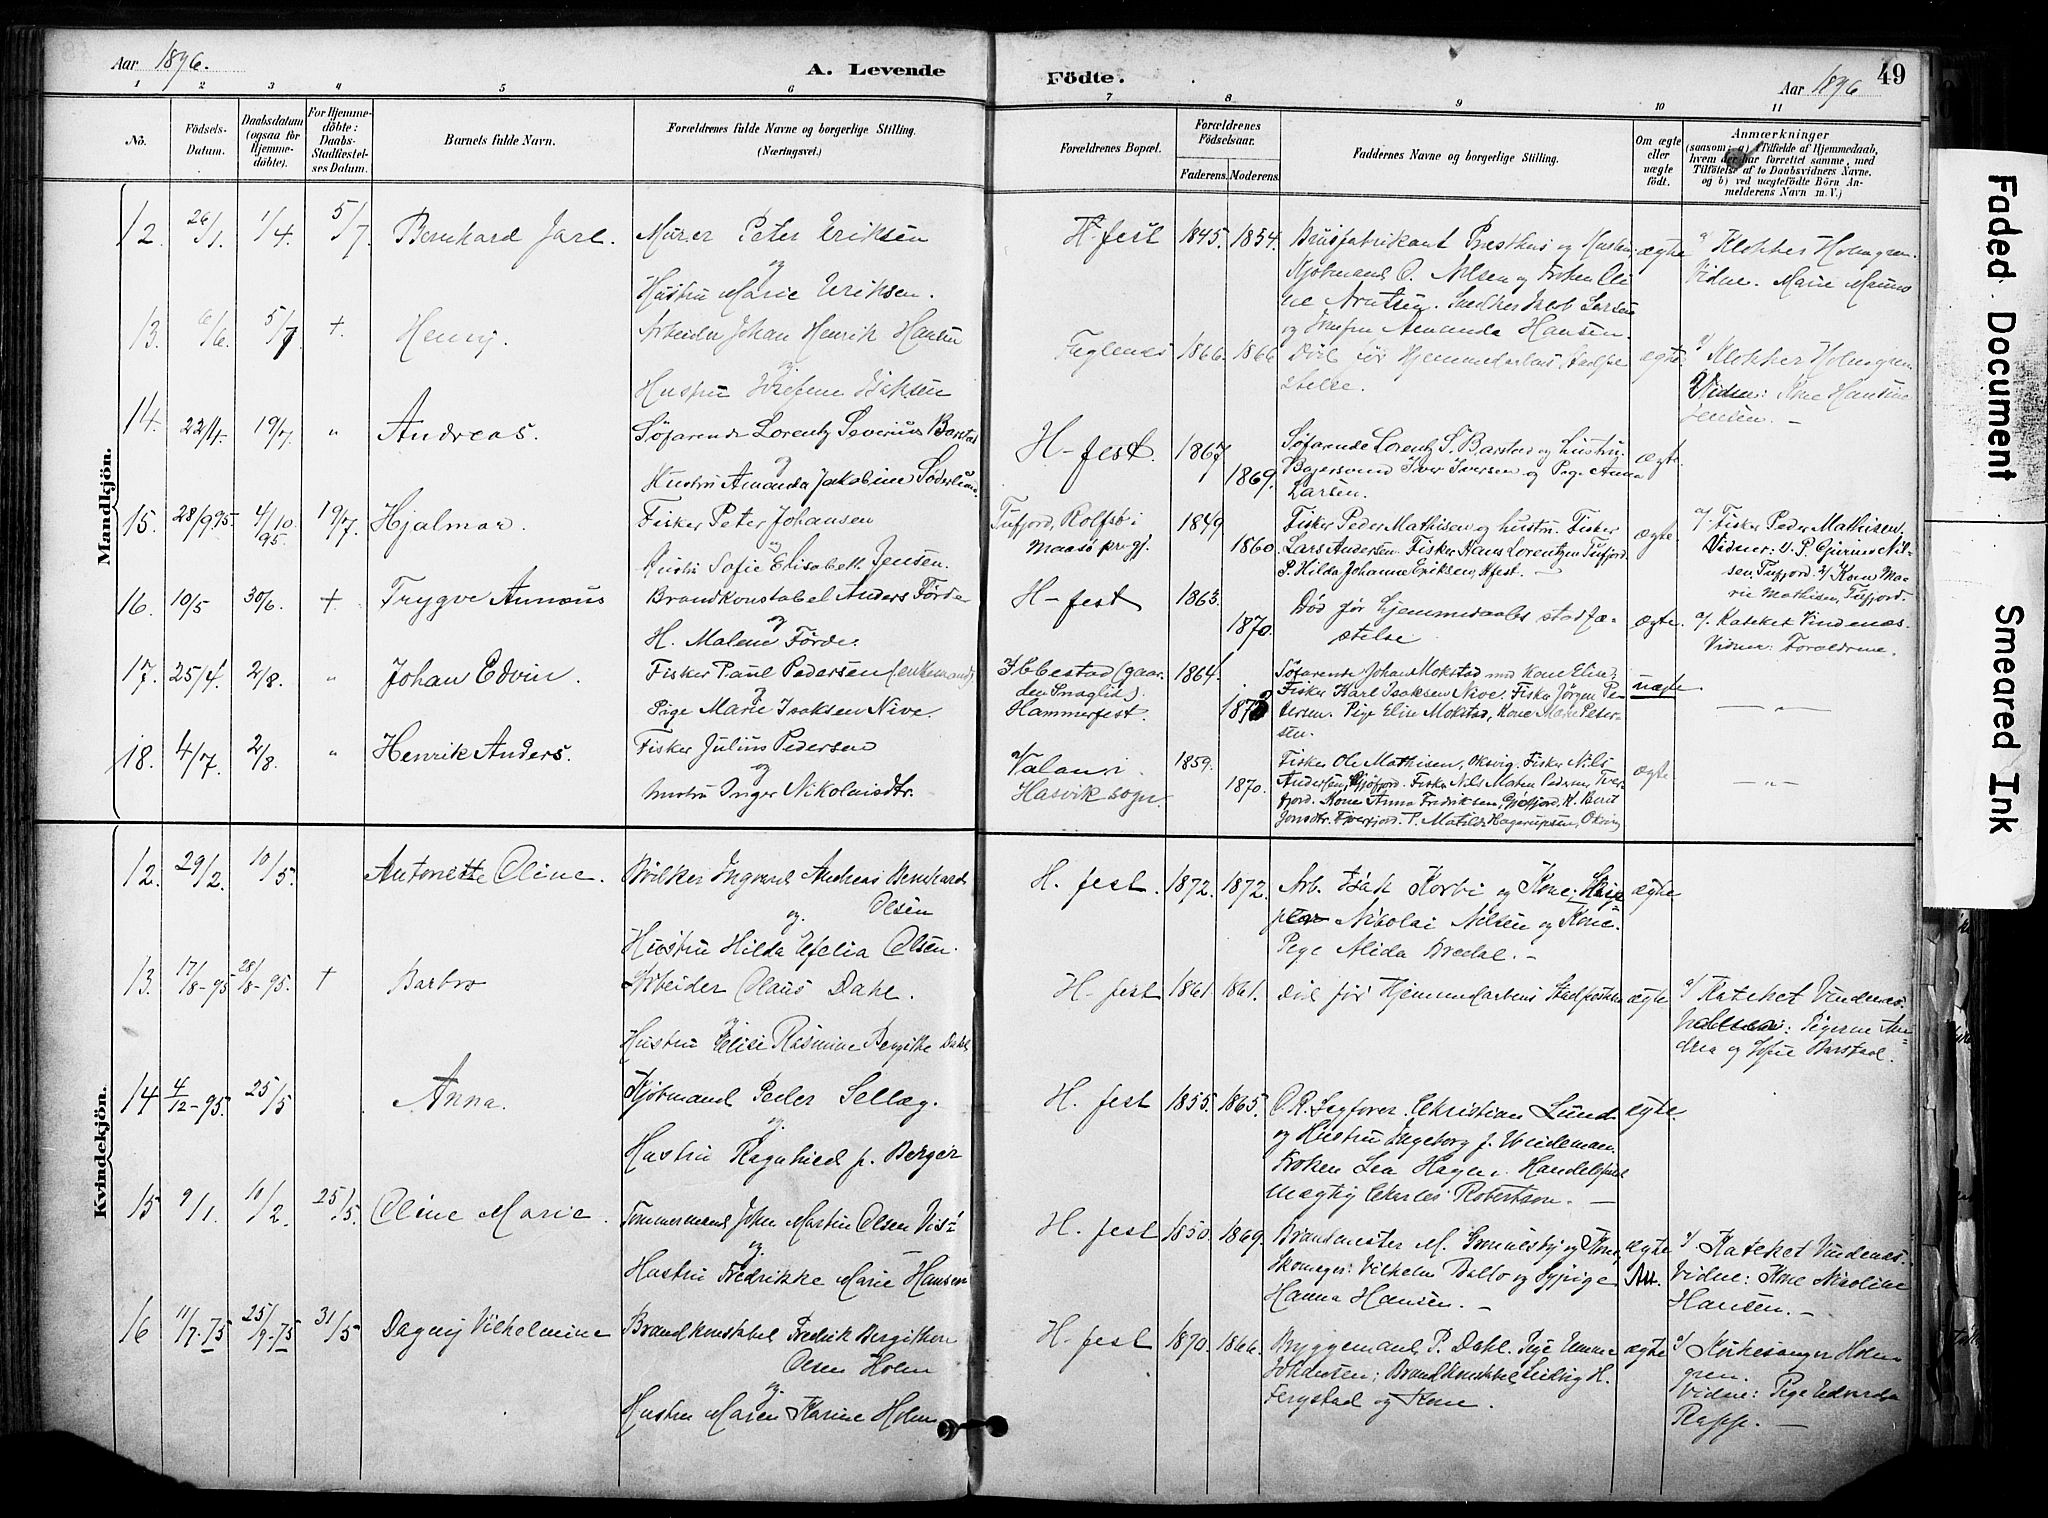 Aar 1896.
A. Levende
Födte.
Aar 1896
49
1 2 3 4 5 6 7 8 9 10 11
No.
Födsels-
Datum.
Daabsdatum
(ogsaa for
Hjemme-
döbte).
For Hjemme-
döbte:
Daabs-
Stadfæstel-
ses Datum.
Barnets fulde Navn.
Forældrenes fulde Navne og borgerlige Stilling.
(Næringsvei.)
Forældrenes Bopæl.
Forældrenes
Födselsaar.
Faderens. Moderens.
Faddernes Navne og borgerlige Stilling.
Om ægte
eller
uægte
födt.
Anmærkninger
(saasom: a) i Tilfælde af Hjemmedaab,
hvem der har forrettet samme, med
Tilföielse af to Daabsvidners Navne.
og b) ved uægtefödte Börn An-
melderens Navn m. V.)
Mandkjön.
12. 26/1. 1/4. 5/7. Bernhard Jarl. Murer Peter Eriksen
og
Hustru Marie Eriksen.
H-fest 1845. 1854. Brusfabrikant Præsthus og Hustru,
Kjöbmand O. Nilsen og Fröken Oli
Snedker Jacob Larsen
og Amanda Hansen.
ægte a/ Klokker Holmgren.
Vidne. Marie
13. 6/6. 5/7 + Henry. Arbeider Johan Henrik Hansen
og
Hustru Isaksen
Fuglenes 1866. 1866 Död för Hjemmedaabens Stadfæ
stelse.
ægte. a/ Klokker Holmgren
Vidne: Kone Hansine
Jensen. —
14. 22/4. 19/7. " Andreas. Söfarende Lorentz Severin Barstad
og
Hustru Amanda Jakobine Söderlund
H-fest. 1867 1869. Söfarende Lorentz S. Barstad og hustru.
Iver Iversen og Pige Anna
Larsen.
ægte.
15. 28/9 95 4/10 95. 19/7. Hjalmar. Fisker Peter Johansen
og
Hustru Sofie Elisabeth Jensen.
Tufjord, Rolfsö i
Maasö prgj.
1849 1860. Fisker Peder Mathisen og hustru. Fisker
Lars Andersen. Fisker Hans Lorentzen Tufjord.
P. Hilda Johanne Eriksen, Hfest. —
ægte. a/ Fisker Peder Mathisen,
Vidner: 1/ P. Gurine Nil-
sen, Tufjord. 2/ Kone Ma-
rie Mathisen, Tufjord.
16. 10/5 30/6. + Trygve Annæus Brandkonstabel Anders Förde
og
H. Malene Förde.
H-fest 1863. 1870. Död för hjemmedaabs stadfæ-
stelse
ægte. a/. Kateket Vindenæs.
Vidner: Forældrene.
17. 25/4. 2/8. " Johan Edvin. Fisker Paul Pedersen (enkemand)
og
Pige Marie Isaksen Nive.
Ibbestad (gaar-
den Snaglid).
Hammerfest.
1864. Söfarende Johan Mokstad med Kone Elise;
Fisker Karl Isaksen Nive. Fisker Jörgen Pe-
dersen. Pige Elise Mokstad, Kone Marie Peter-
sen.
uægte. — " —
18. 4/7. 2/8. " Henrik Anders. Fisker Julius Pedersen
og
Hustru Inger Nikolaisdtr.
Valan i
Hasvik sogn.
1859. 1870. Fisker Ole Mathisen, Oksvig. Fisker Nils
Andersen, Gjöfjord. Fisker Nils Morten Pedersen, Tver
fjord. Kone Anna Fredriksen, Gjöfjord. K. Berit
Jonsdtr. Tverfjord. P. Matilde Hagerupsen, Oksvig
ægte — " —
Kvindekjön.
12. 29/2. 10/5. Antonette Oline. Bödker Ingvard Andreas Bernhard
og. Olsen
Hustru Hilda Ofelia Olsen.
H. fest. 1872. 1872. Arb. Isak Korbi og Kone; Skip
per Nikolai Nilsen og Kone.
Pige Alida Bredal. —
ægte
13. 17/8-95 28/8-95. + Barbro Arbeider Olaus Dahl.
og
Hustru Elise Rasmine Bergitte Dahl
H. fest 1861. 1861. Död för Hjemmedaabens Stadfæstelse ægte a/ Kateket Vindenæs.
Pigerne An-
drea og Sofie Barstad.
14 4/12-95. 25/5 Anna. Kjöbmand Peder Sellæg.
og.
Hustru Ragnhild f. Berger
H. fest 1855. 1865. O.R. Sagförer Christian Lund
og Hustru Ingeborg f. Lindeman
Fröken Lea Hagen. Handelsfuld
mægtig Charles Robertson. —
ægte.
15 9/1. 10/2. 25/5. Oline Marie. Tömmermand Johan Martin Olsen
og
Hustru Fredrikke Marie Hansen
H. fest 1850. 1869. Brandmester M. og Kone,
Skomager: Vilhelm Ballo og Sypige
Hanna Hansen. —
ægte a/ Kateket Vindenæs.
Vidne: Kone Nicoline
Hansen. —
16 11/7-75 25/9-75 31/5 Dagny Vilhelmine Brandkonstabel Fredrik Bergithon
Olsen Holm
og
Hustru Maren Karine Holm
H. fest 1870. 1866. Bryggemand P. Dahl. Pige Emma
Johansen; Brandkonstabel Ludvig H.
Fergstad og Kone.
ægte a/ Kirkesanger Holm
gren.
Vidne: Pige Edvarda
Rapp. —
Faded Document
Smeared Ink